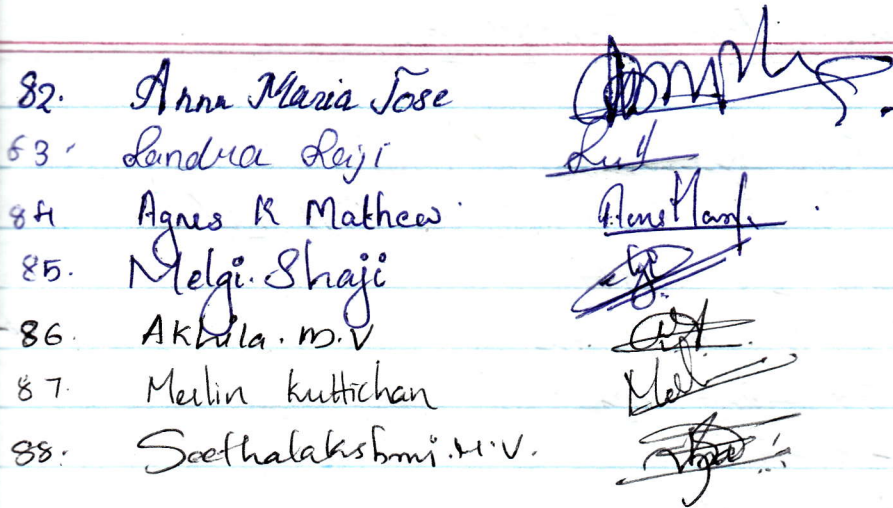 82. Anna Maria Jose
63. Sandra Saji
84 Agnes K Mathew
85. Melgi. Shaji
86. Akhila. m. V
87. Merlin Kuttichan
88. Seethalakshmi. M. V.